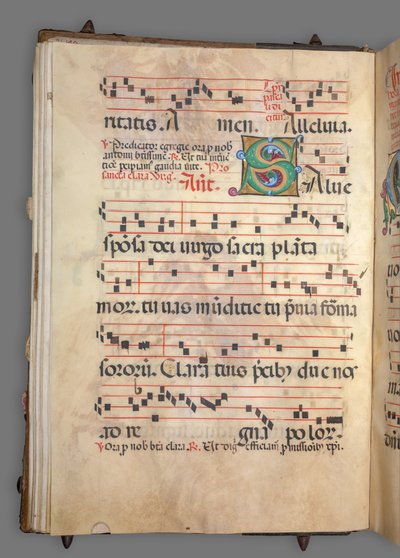 ritatis. A men. Alleluia.
℣ Predicator egregie ora p nob
antoni btissime. ℞. Et tui
gaudia vite. Pro
sancta clara Ant. Salve
sposa dei virgo sacra plāta
mor. tu vas mūditie tu p̄via foꝛ̄ma
sororū. Clara tuis p̄cibꝫ duc nos
ad re gna polor.
℣ Ora p nob bt̄a clara. ℞. Ut dig̅ efficiam̄ p̄missioībꝫ xp̄i.